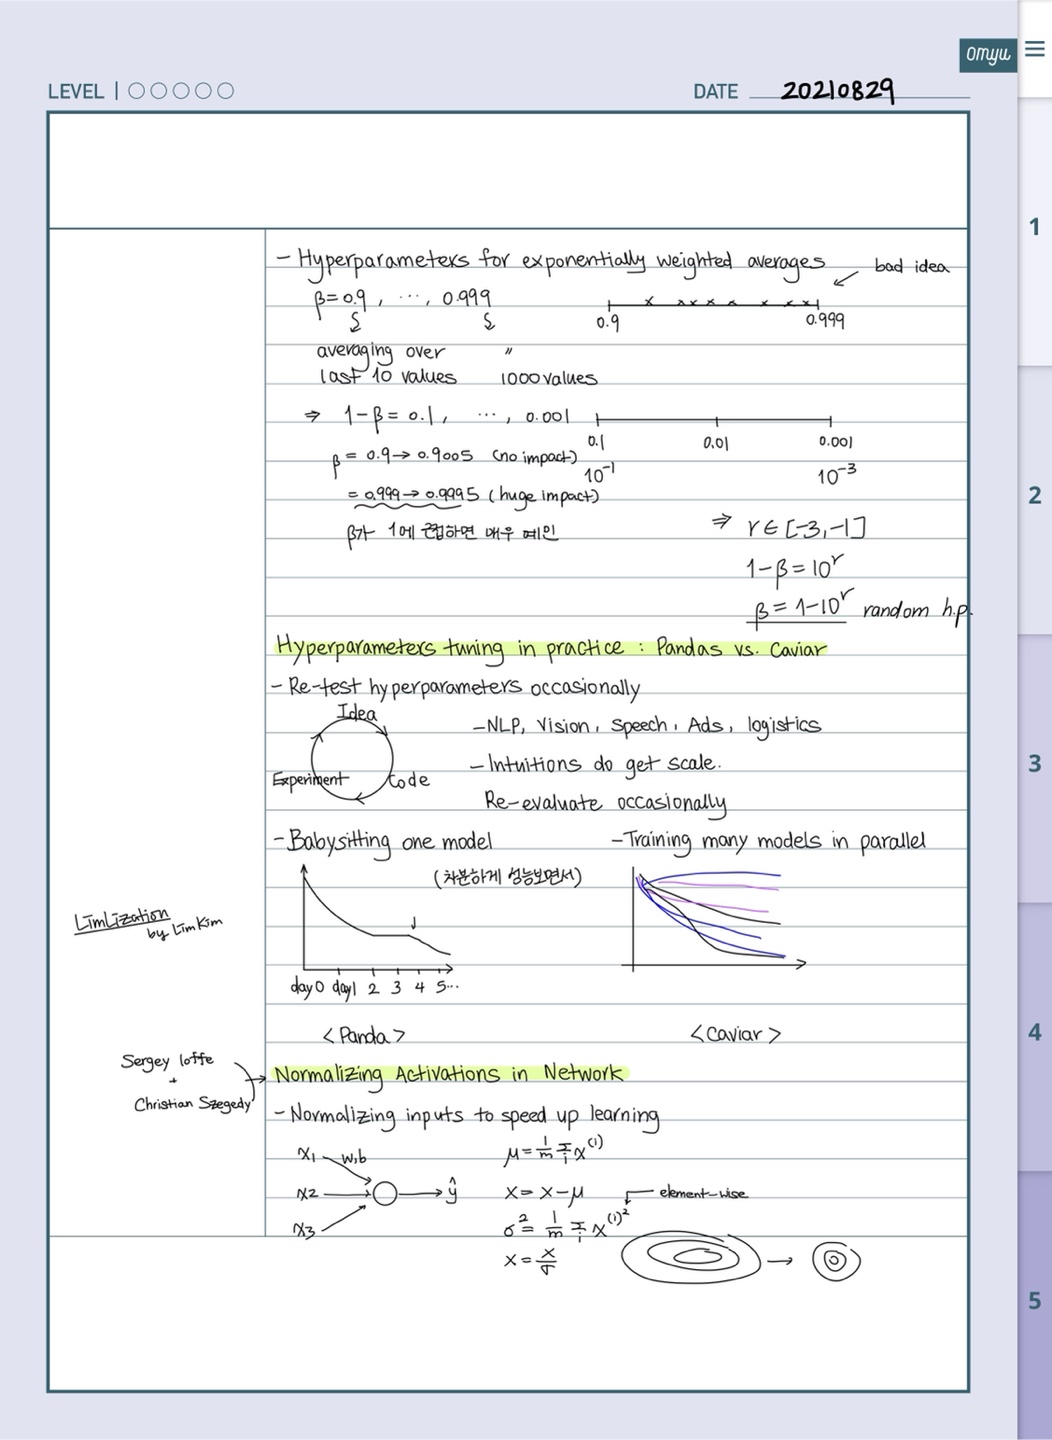 omyu
LEVEL
DATE 20210829
1
2
3
4
5
- Hyperparameters for exponentially weighted averages
bad idea
β=0.9, ..., 0.999
0.9 0.999
averaging over "
last 10 values 1000 values
⇒ 1-β=0.1, ..., 0.001
0.1 0.01 0.001
β = 0.9→0.9005 (no impact)
10⁻¹ 10⁻³
= 0.999→0.9995 (huge impact)
β가 1에 근접하면 매우 예민
⇒ r∈[-3,-1]
1-β=10ʳ
β=1-10ʳ random h.p.
Hyperparameters tuning in practice : Pandas vs. Caviar
- Re-test hyperparameters occasionally
Idea
Experiment Code
- NLP, Vision, Speech, Ads, logistics
- Intuitions do get scale.
Re-evaluate occasionally
- Babysitting one model
(차분하게 성능보면서)
day0 day1 2 3 4 5...
<Panda>
- Training many models in parallel
<Caviar>
LimLization
by LimKim
Sergey Ioffe
+
Christian Szegedy
Normalizing Activations in Network
- Normalizing inputs to speed up learning
x1 w,b
x2 ŷ
x3
μ = 1/m Σi x⁽ⁱ⁾
x = x-μ
element-wise
σ² = 1/m Σi x⁽ⁱ⁾²
x = x/σ